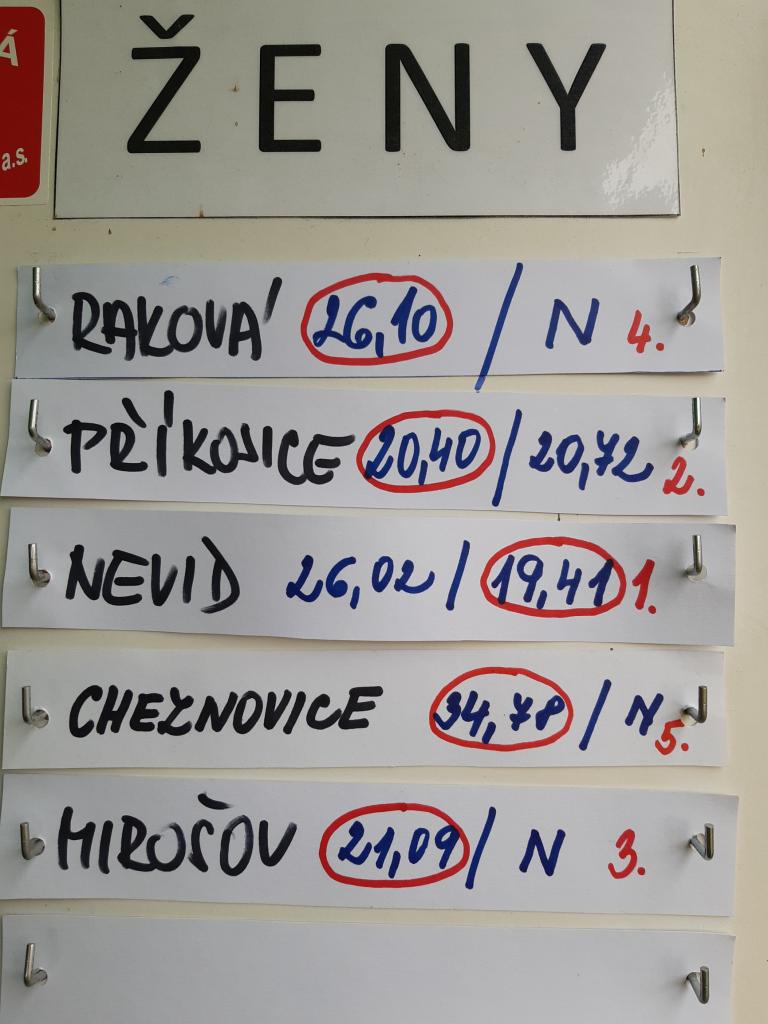 Á
a.s.
ŽENY
RAKOVÁ 26,10 / N 4.
PŘÍKOSICE 20,40 / 20,72 2.
NEVID 26,02 / 19,41 1.
CHEZNOVICE 34,78 / N 5.
MIROŠOV 21,09 / N 3.